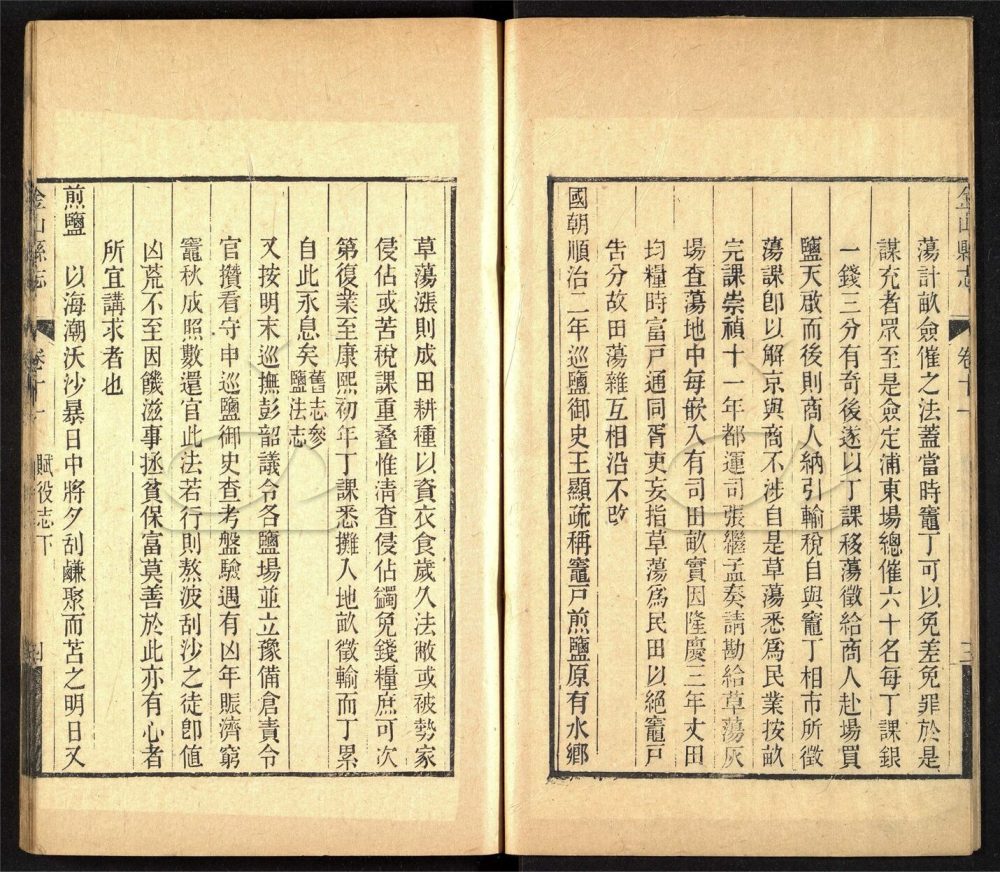 金山縣志 卷十一
蕩計畝僉催之法蓋當時竈丁可以免差免罪於是
謀充者眾至是僉定浦東場總催六十名每丁課銀
一錢三分有奇後遂以丁課移蕩徵給商人赴場買
鹽天啟而後則商人納引輸稅自與竈丁相市所徵
蕩課卽以解京與商不涉自是草蕩悉爲民業按畝
完課崇禎十一年都運司張繼孟奏請勘給草蕩灰
場查蕩地中每嵌入有司田畝實因隆慶三年丈田
均糧時富戸通同胥吏妄指草蕩爲民田以絕竈戸
告分故田蕩雜互相沿不改
國朝順治二年巡鹽御史王顯疏稱竈戸煎鹽原有水鄉
草蕩漲則成田耕種以資衣食歲久法敝或被勢家
侵佔或苦稅課重疊惟淸查侵佔蠲免錢糧庶可次
第復業至康熙初年丁課悉攤入地畝徵輸而丁累
自此永息矣舊志參鹽法志
又按明末巡撫彭韶議令各鹽場並立豫備倉責令
官攢看守申巡鹽御史查考盤驗遇有凶年賑濟窮
竈秋成照數還官此法若行則熬波刮沙之徒卽値
凶荒不至因饑滋事拯貧保富莫善於此亦有心者
所宜講求者也
煎鹽 以海潮沃沙暴日中將夕刮鹻聚而苫之明日又
金山縣志 卷十一 賦役志下